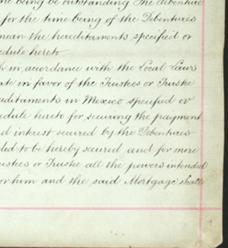 me being be outstanding The Debenture
for the time being of the Debentures
mean the hereditaments specified or
edule hereto
in accordance with the Local Laws
in favor of the Trustees or Trustee
editaments in Mexico specified or
edule hereto for securing the payment
d interest secured by the Debentures
ded to be hereby secured and for more
ustees or Trustee all the powers intended
or him and the said Mortgage shall